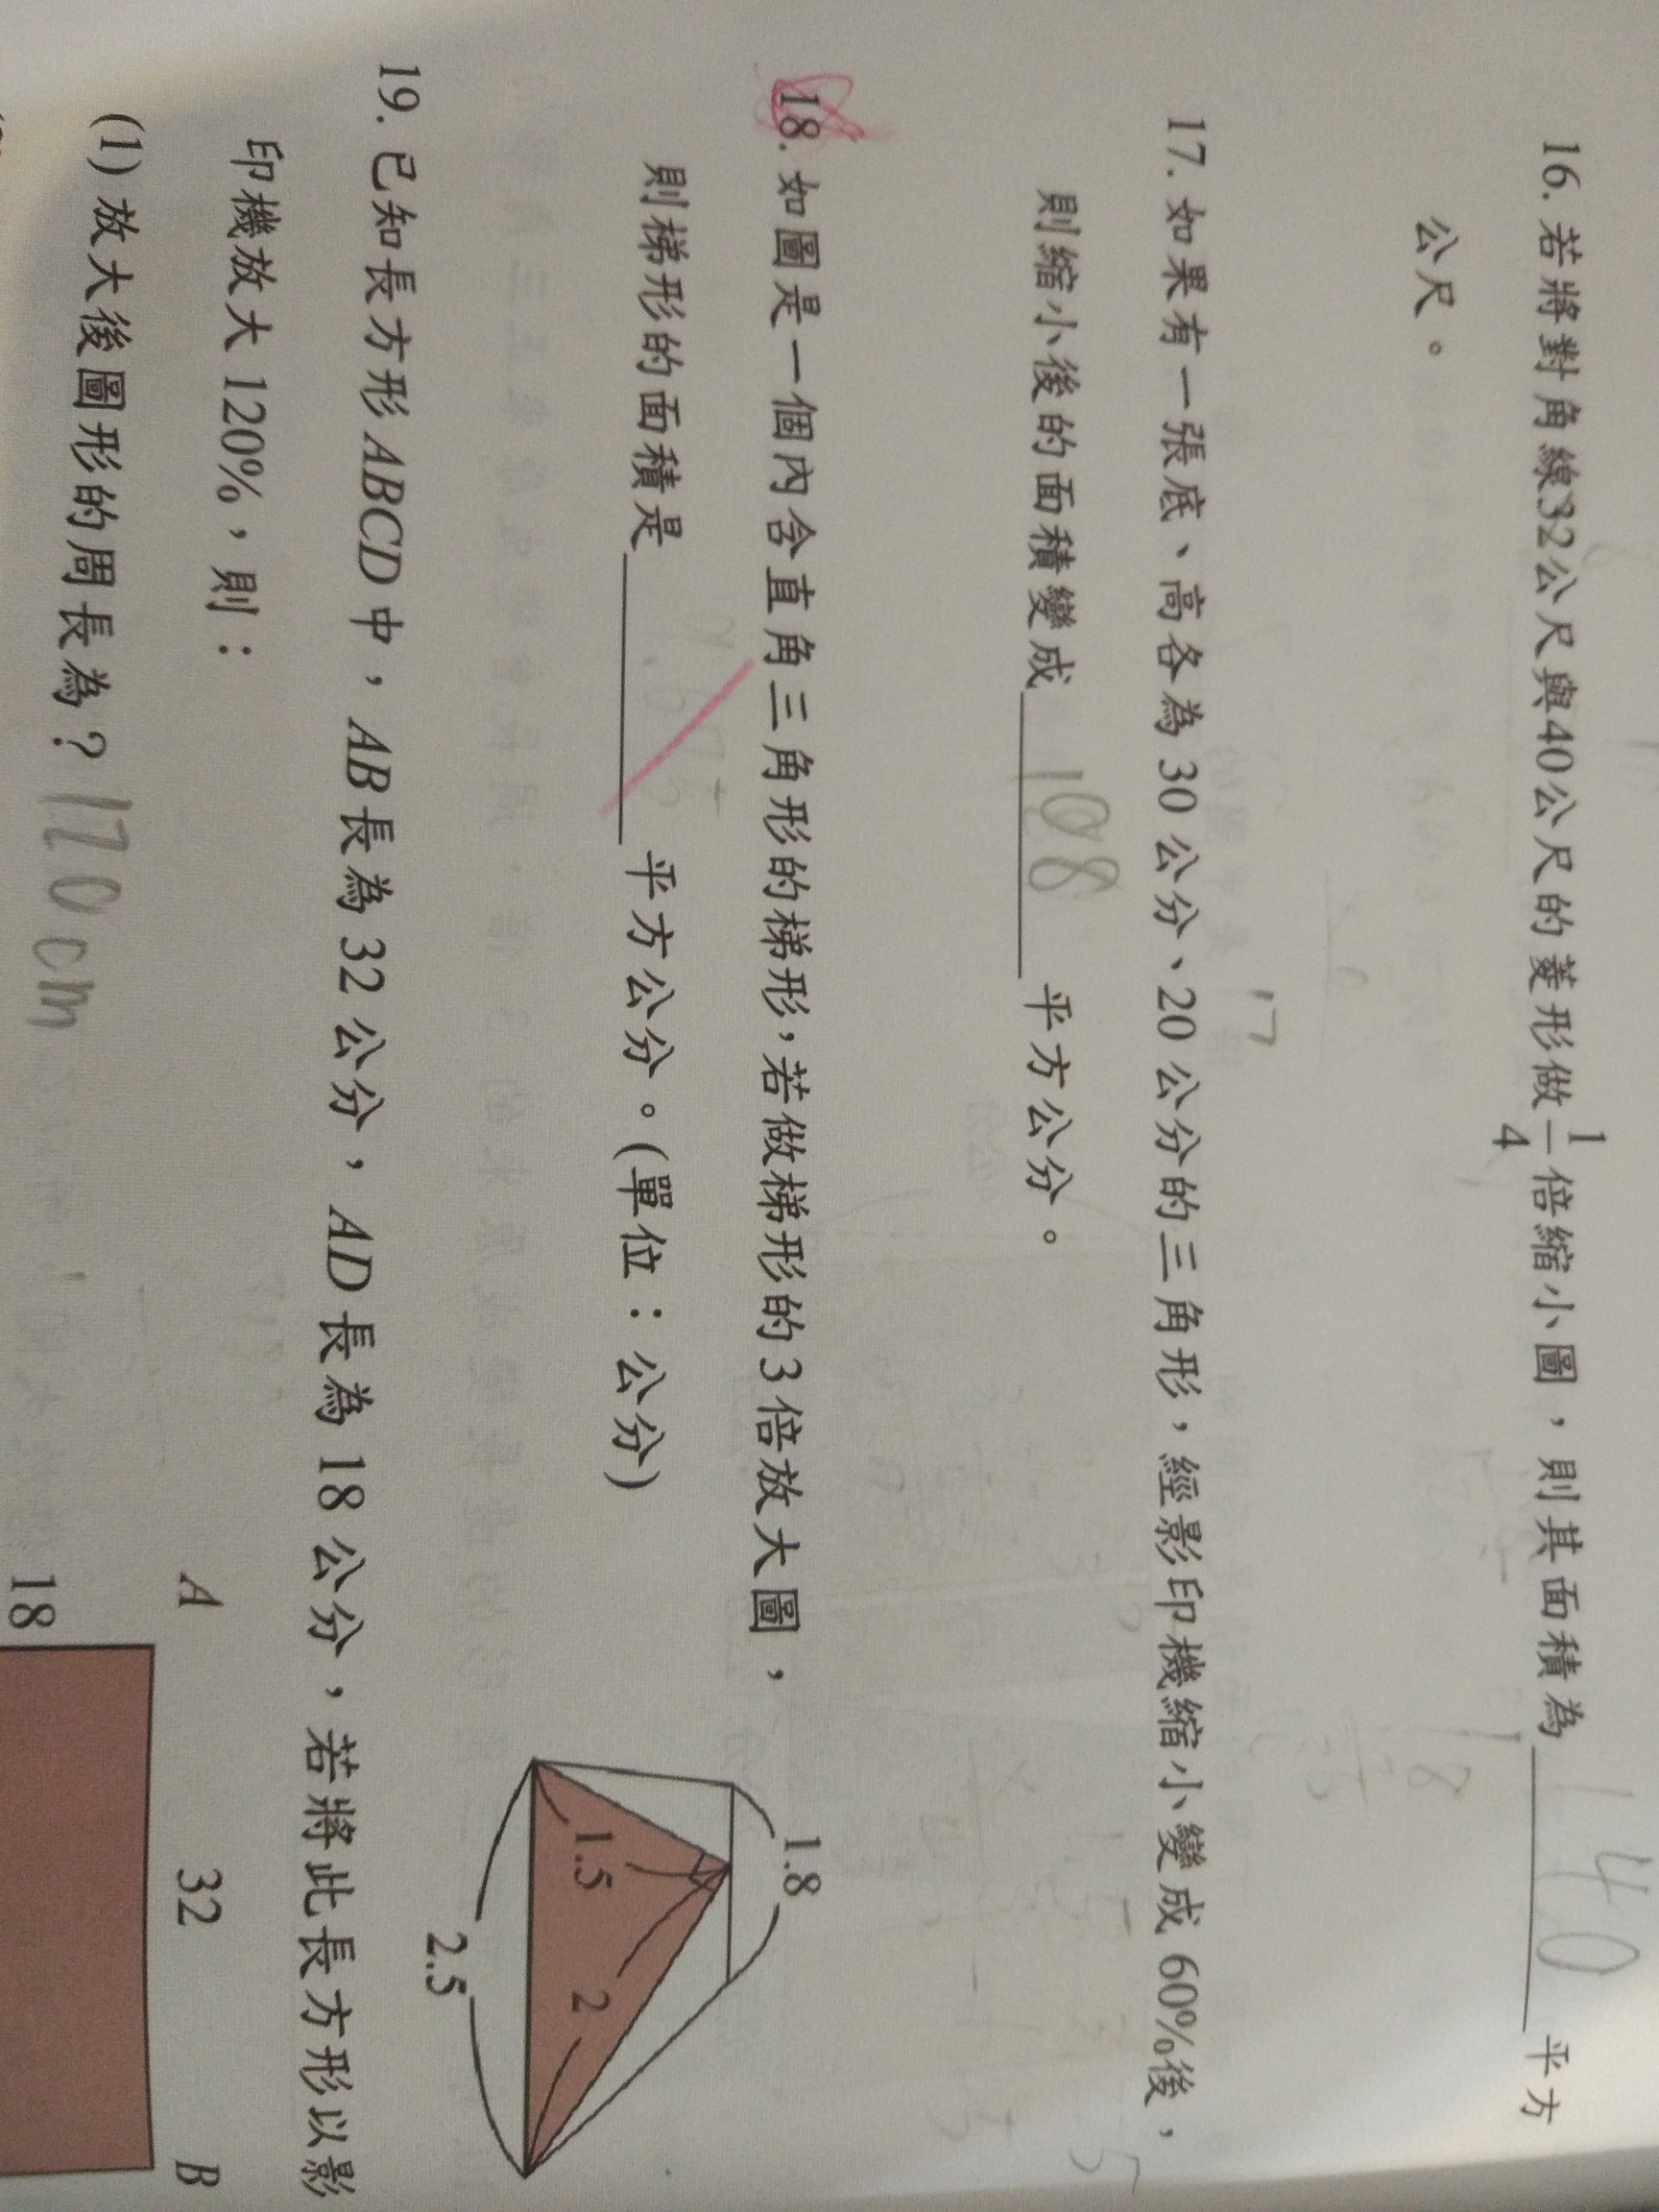 16. 若將對角線32公尺與40公尺的菱形做1/4倍縮小圖，則其面積為 40 平方
公尺。
17. 如果有一張底、高各為 30 公分、20 公分的三角形，經影印機縮小變成 60%後，
則縮小後的面積變成 108 平方公分。
18. 如圖是一個內含直角三角形的梯形，若做梯形的 3 倍放大圖，
則梯形的面積是 平方公分。(單位：公分)
1.8
1.5
2
2.5
19. 已知長方形 ABCD 中，AB 長為 32 公分，AD 長為 18 公分，若將此長方形以影
印機放大 120%，則：
(1) 放大後圖形的周長為？120cm
A 32 B
18